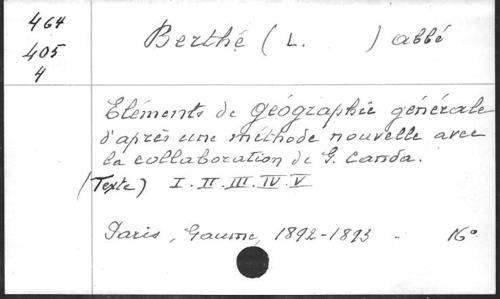 464
405
4
Berthé (L. ) abbé
Eléments de géographie générale
d'après une méthode nouvelle avec
la collaboration de G. Canda.
(Texte) I. II. III. IV. V
Paris, Gaume, 1892-1893 - 16°